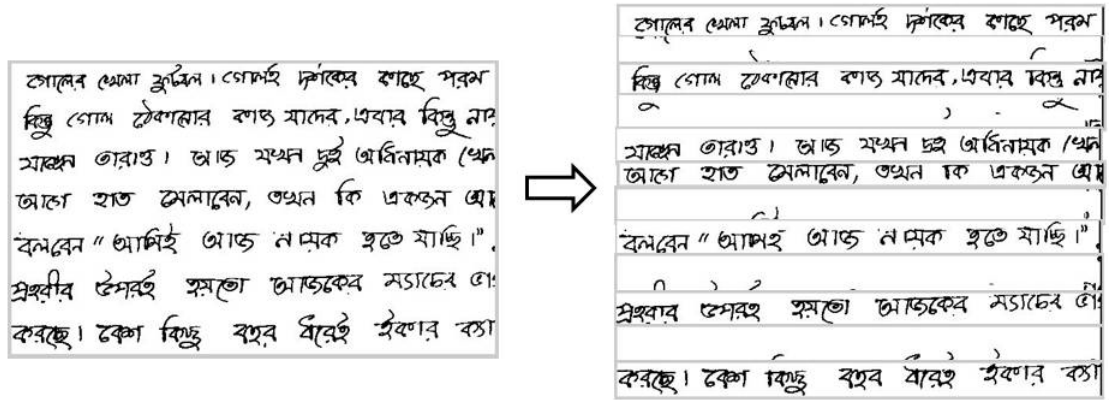 গোলের খেলা ফুটবল। গোলই দর্শকের কাছে পরম
কিন্তু গোল ঠেকানোর কাজ যাদের, এবার কিন্তু
যাচ্ছেন তারাও। আজ যখন দুই অধিনায়ক
আগে হাত মেলাবেন, তখন কি একজন
বলবেন “আমিই আজ নায়ক হতে যাচ্ছি।”
প্রহরীর উপরই হয়তো আজকের ম্যাচের
করছে। বেশ কিছু বছর ধরেই ইকার ক্যা
গোলের খেলা ফুটবল। গোলই দর্শকের কাছে পরম
কিন্তু গোল ঠেকানোর কাজ যাদের, এবার কিন্তু
যাচ্ছেন তারাও। আজ যখন দুই অধিনায়ক
আগে হাত মেলাবেন, তখন কি একজন
বলবেন “আমিই আজ নায়ক হতে যাচ্ছি।”
প্রহরীর উপরই হয়তো আজকের ম্যাচের
করছে। বেশ কিছু বছর ধরেই ইকার ক্যা